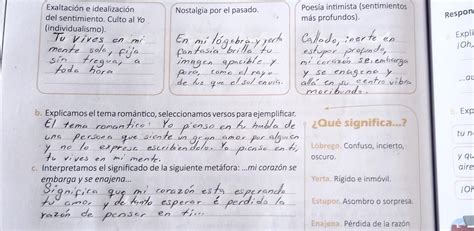 Exaltación e idealización
del sentimiento. Culto al Yo
(individualismo).
Tu vives en mi
mente sola, fija
sin tregua, a
toda hora
Nostalgia por el pasado.
En mi lóbrega y yerta
fantasía brilla tu
imagen apacible y
pura, como el rayo
de luz que el sol envía.
Poesía intimista (sentimientos
más profundos).
Callado, inerte en
estupor profundo,
mi corazón se embarga
y se enagena y
allá en su centro vibra
moribundo.
b. Explicamos el tema romántico, seleccionamos versos para ejemplificar.
El tema romantico: Yo pienso en tu habla de
una persona que siente un gran amor por alguien
y no lo expresa escribiendolo: Yo pienso en ti,
tu vives en mi mente.
c. Interpretamos el significado de la siguiente metáfora: ...mi corazón se
embarga y se enajena...
Significa que mi corazón esta esperando
tu amor y de tanto esperar é perdido la
razón de pensar en ti...
¿Qué significa...?
Lóbrego. Confuso, incierto,
oscuro.
Yerta. Rígido e inmóvil.
Estupor. Asombro o sorpresa.
Enajena. Pérdida de la razón
Respon
Expli
¡Oh,
Exp
tu re
y qu
aire
¡Oh